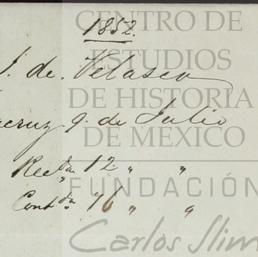 1852.
CENTRO DE
ESTUDIOS
DE HISTORIA
DE MEXICO
FUNDACIÓN
Carlos Slim
J. de Velasco
cruz 9 de Julio
Recda 12 " "
Contda 16 " "